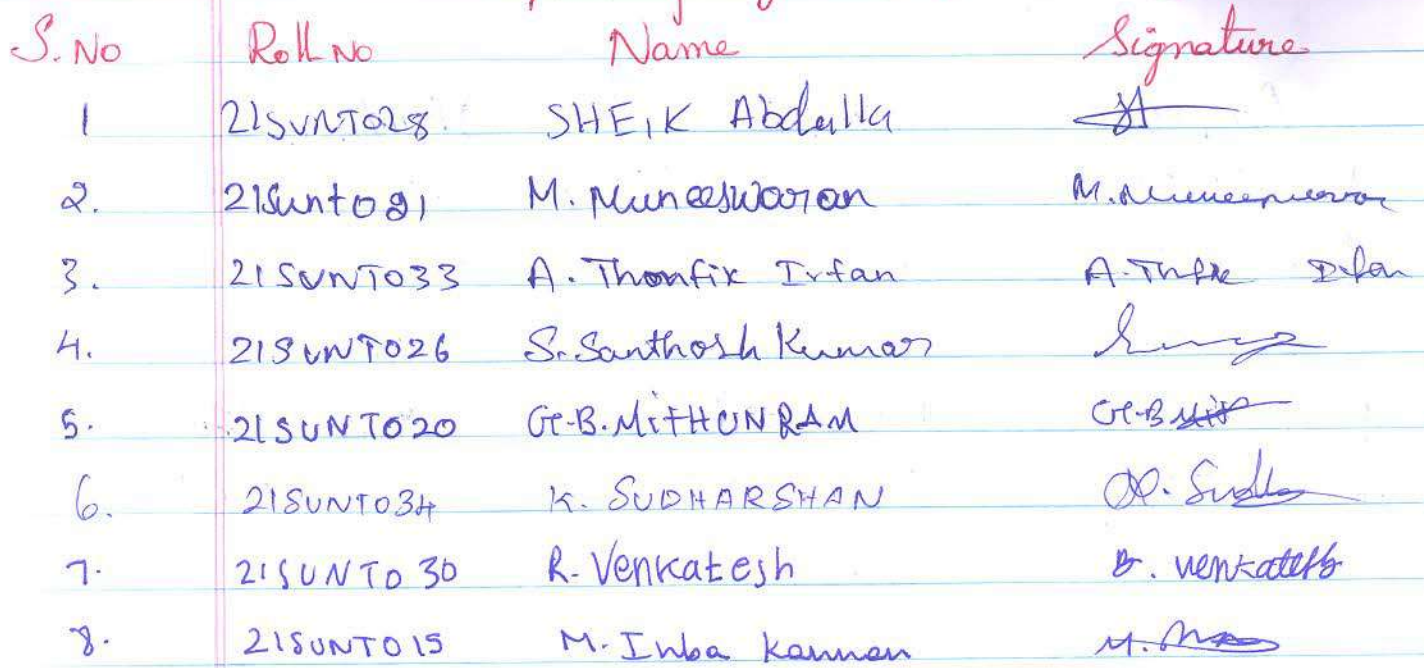 S. No Roll No Name Signature
1 21SUNT028 SHEIK Abdulla
2. 21Sunt021 M. Muneeswaran M. Muneeswaran
3. 21SUNT033 A. Thonfix Irfan A. Irfan
4. 21SUNT026 S. Santhosh Kumar
5. 21SUNT020 G.B. MITHUN RAM G.B
6. 21SUNT034 K. SUDHARSHAN
7. 21SUNT030 R. Venkatesh venkatesh
8. 21SUNT015 M. Inba Kannan M.